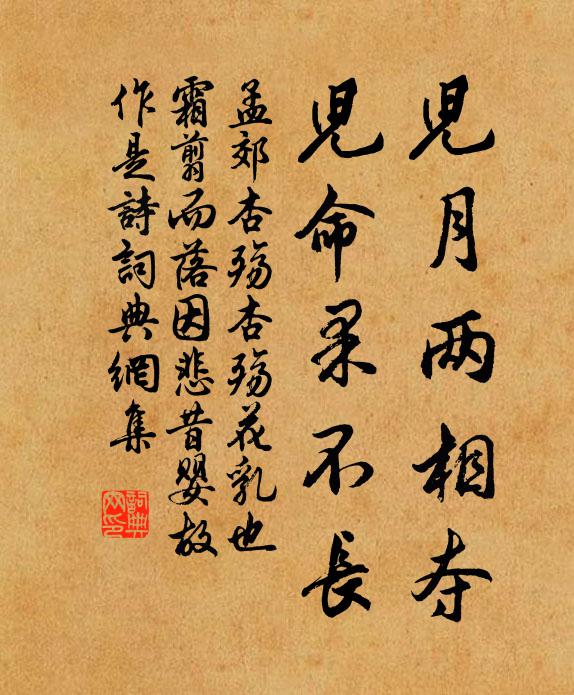 児月两相夺
児命果不長
孟郊杏殇杏殇花乳也
霜翦而落因悲昔嬰故
作是詩詞典網集
詞典
网印